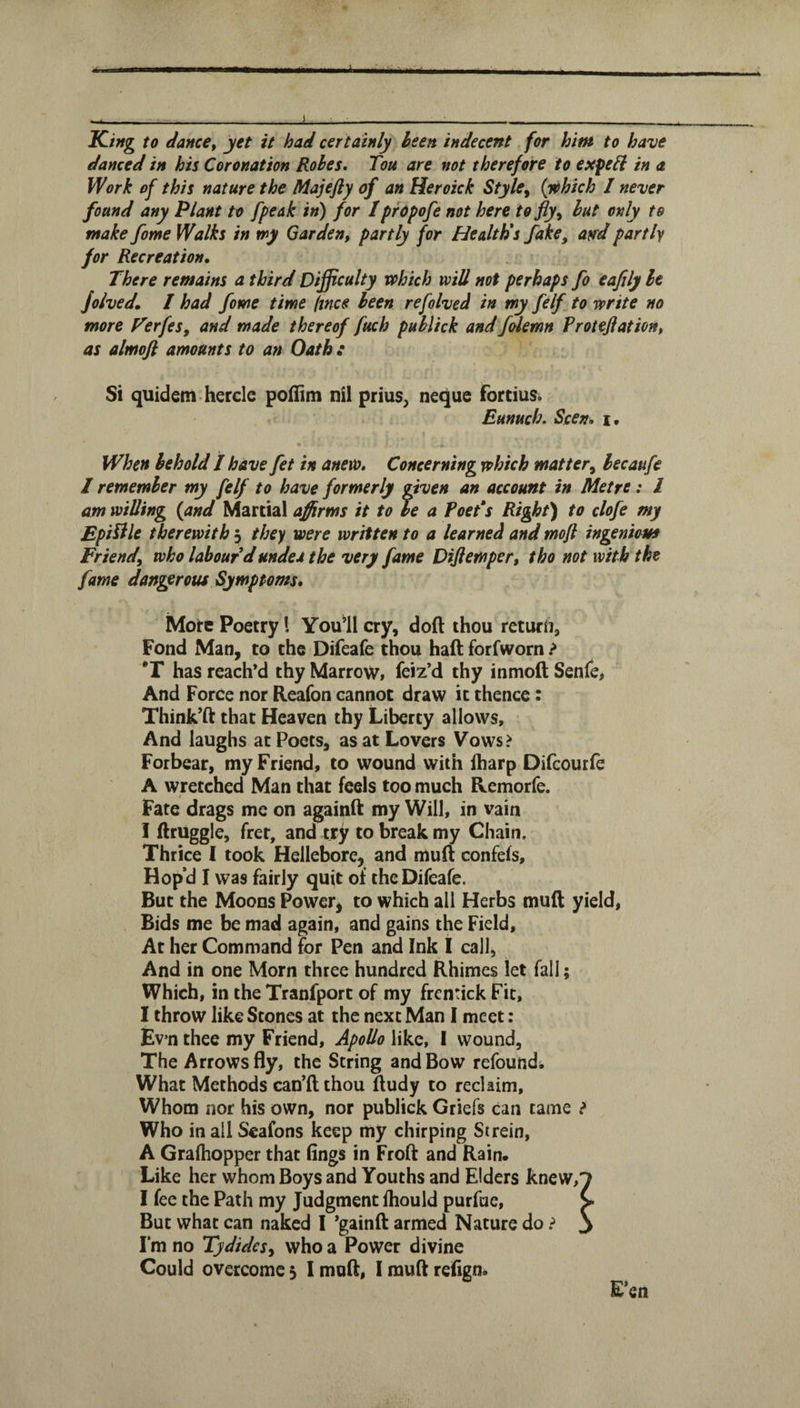 King to dance, yet it had certainly been indecent for him to have
danced in his Coronation Robes. You are not therefore to expect in a
Work of this nature the Majeſty of an Heroick Style, (which I never
found any Plant to ſpeak in) for I propoſe not here to fly, but only to
make ſome Walks in my Garden, partly for Health's ſake, and partly
for Recreation.
There remains a third Difficulty which will not perhaps ſo eaſily be
ſolved. I had ſome time ſince been reſolved in my ſelf to write no
more Verſes, and made thereof ſuch publick and ſolemn Proteſtation,
as almoſt amounts to an Oath:
Si quidem hercle poſſim nil prius, neque fortius.
Eunuch. Scen. 1.
When behold I have ſet in anew. Concerning which matter, becauſe
I remember my ſelf to have formerly given an account in Metre: I
am willing (and Martial affirms it to be a Poet's Right) to cloſe my
Epiſtle therewith; they were written to a learned and moſt ingenious
Friend, who labour'd under the very ſame Diſtemper, tho not with the
ſame dangerous Symptoms.
More Poetry! You'll cry, doſt thou return,
Fond Man, to the Diſeaſe thou haſt forſworn?
'T has reach'd thy Marrow, ſeiz'd thy inmoſt Senſe,
And Force nor Reaſon cannot draw it thence:
Think'ſt that Heaven thy Liberty allows,
And laughs at Poets, as at Lovers Vows?
Forbear, my Friend, to wound with ſharp Diſcourſe
A wretched Man that feels too much Remorſe.
Fate drags me on againſt my Will, in vain
I ſtruggle, fret, and try to break my Chain.
Thrice I took Hellebore, and muſt confeſs,
Hop'd I was fairly quit of the Diſeaſe.
But the Moons Power, to which all Herbs muſt yield,
Bids me be mad again, and gains the Field,
At her Command for Pen and Ink I call,
And in one Morn three hundred Rhimes let fall;
Which, in the Tranſport of my frentick Fit,
I throw like Stones at the next Man I meet:
Ev'n thee my Friend, Apollo like, I wound,
The Arrows fly, the String and Bow reſound.
What Methods can'ſt thou ſtudy to reclaim,
Whom nor his own, nor publick Griefs can tame?
Who in all Seaſons keep my chirping Strein,
A Graſhopper that ſings in Froſt and Rain.
Like her whom Boys and Youths and Elders knew,
I ſee the Path my Judgment ſhould purſue,
But what can naked I 'gainſt armed Nature do?
I'm no Tydides, who a Power divine
Could overcome; I muſt, I muſt reſign.
E'en